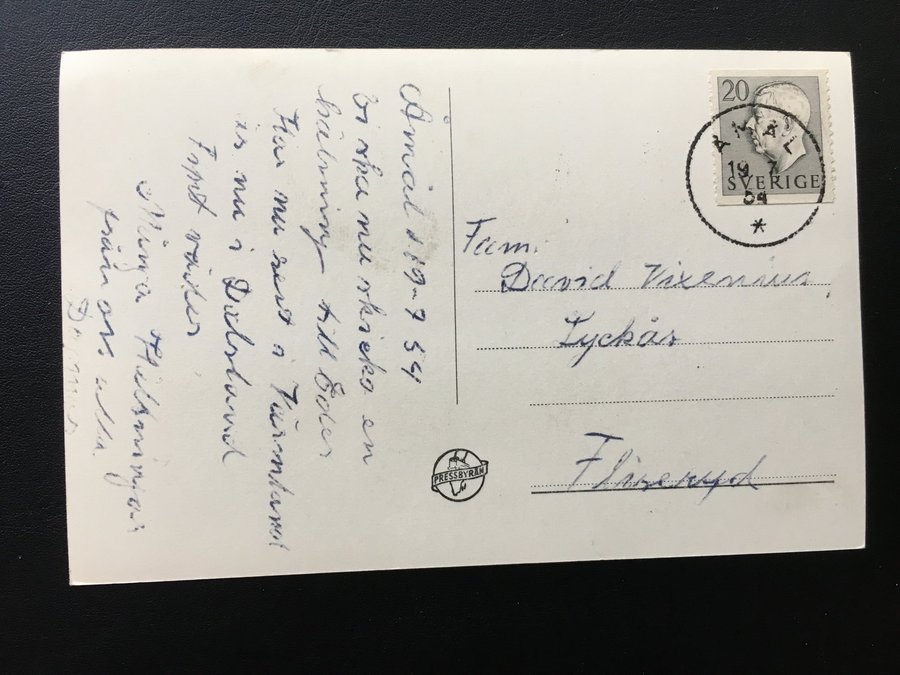 Åmål d. 19-7 54
Vi ska nu skicka en
hälsning till Eder
Har nu rest i Värmland
är nu i Dalsland
Fint väder.
Många Hälsningar
från oss alla
20
SVERIGE
ÅMÅL
19 7
54
*
Fam.
David Vixenius.
Lyckås
Fliseryd
PRESSBYRÅN